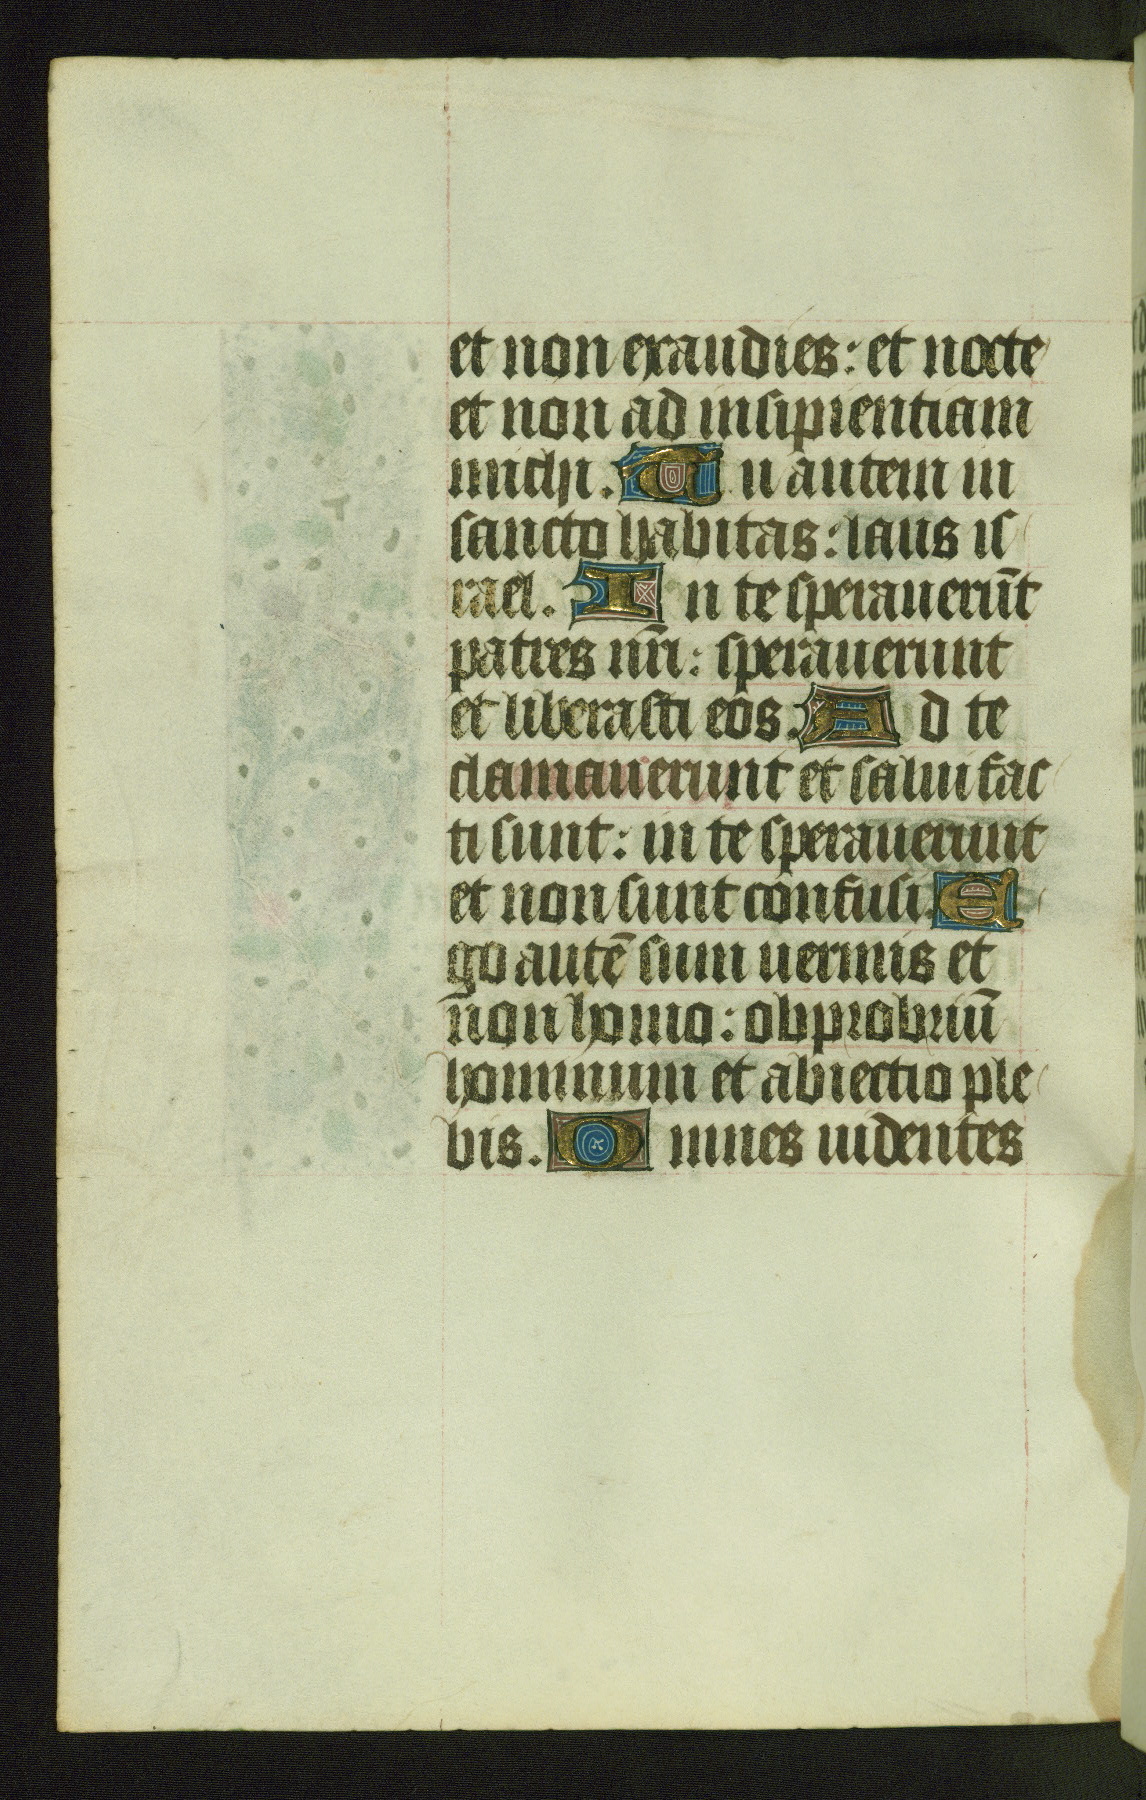 et non exaudies: et nocte
et non ad insipientiam
michi. Tu autem in
sancto habitas: laus is
rael. In te sperauerūt
patres nr̄i: sperauerunt
et liberasti eos. Ad te
clamauerunt et salui fac
ti sunt: in te sperauerunt
et non sunt confusi. E
go autē sum uermis et
non homo: obprobriū
hominum et abiectio ple
bis. Omnes uidentes